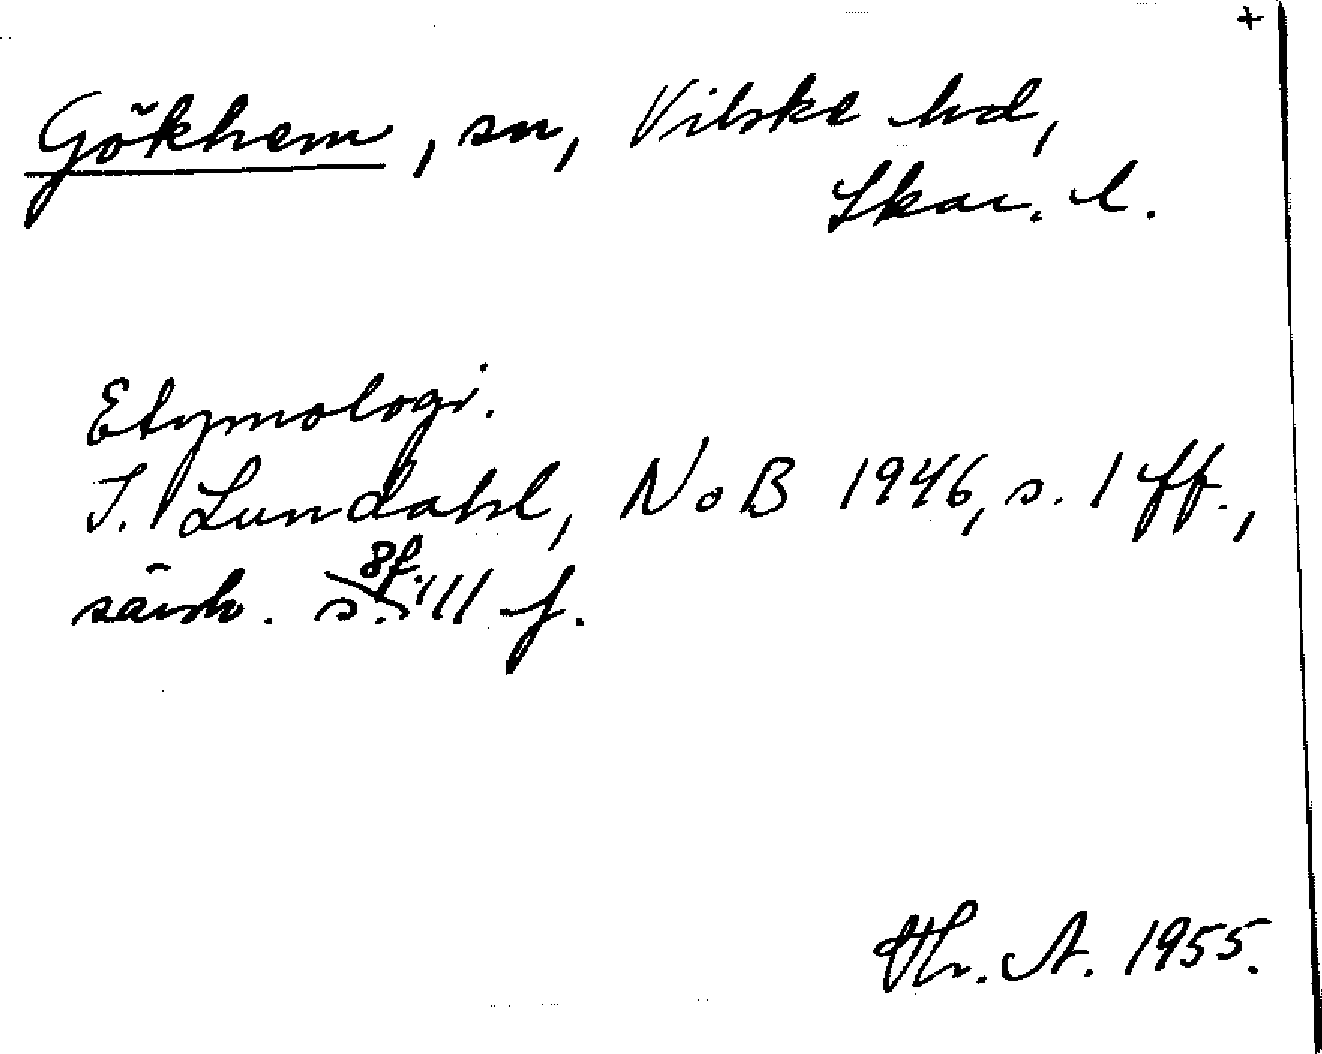 +
Gökhem, sn, Vilske hd,
Skar. l.
Etymologi.
I. Lundahl, NoB 1946, s. 1 ff.,
särsk. s. 8f., 11 f.
A. 1955.